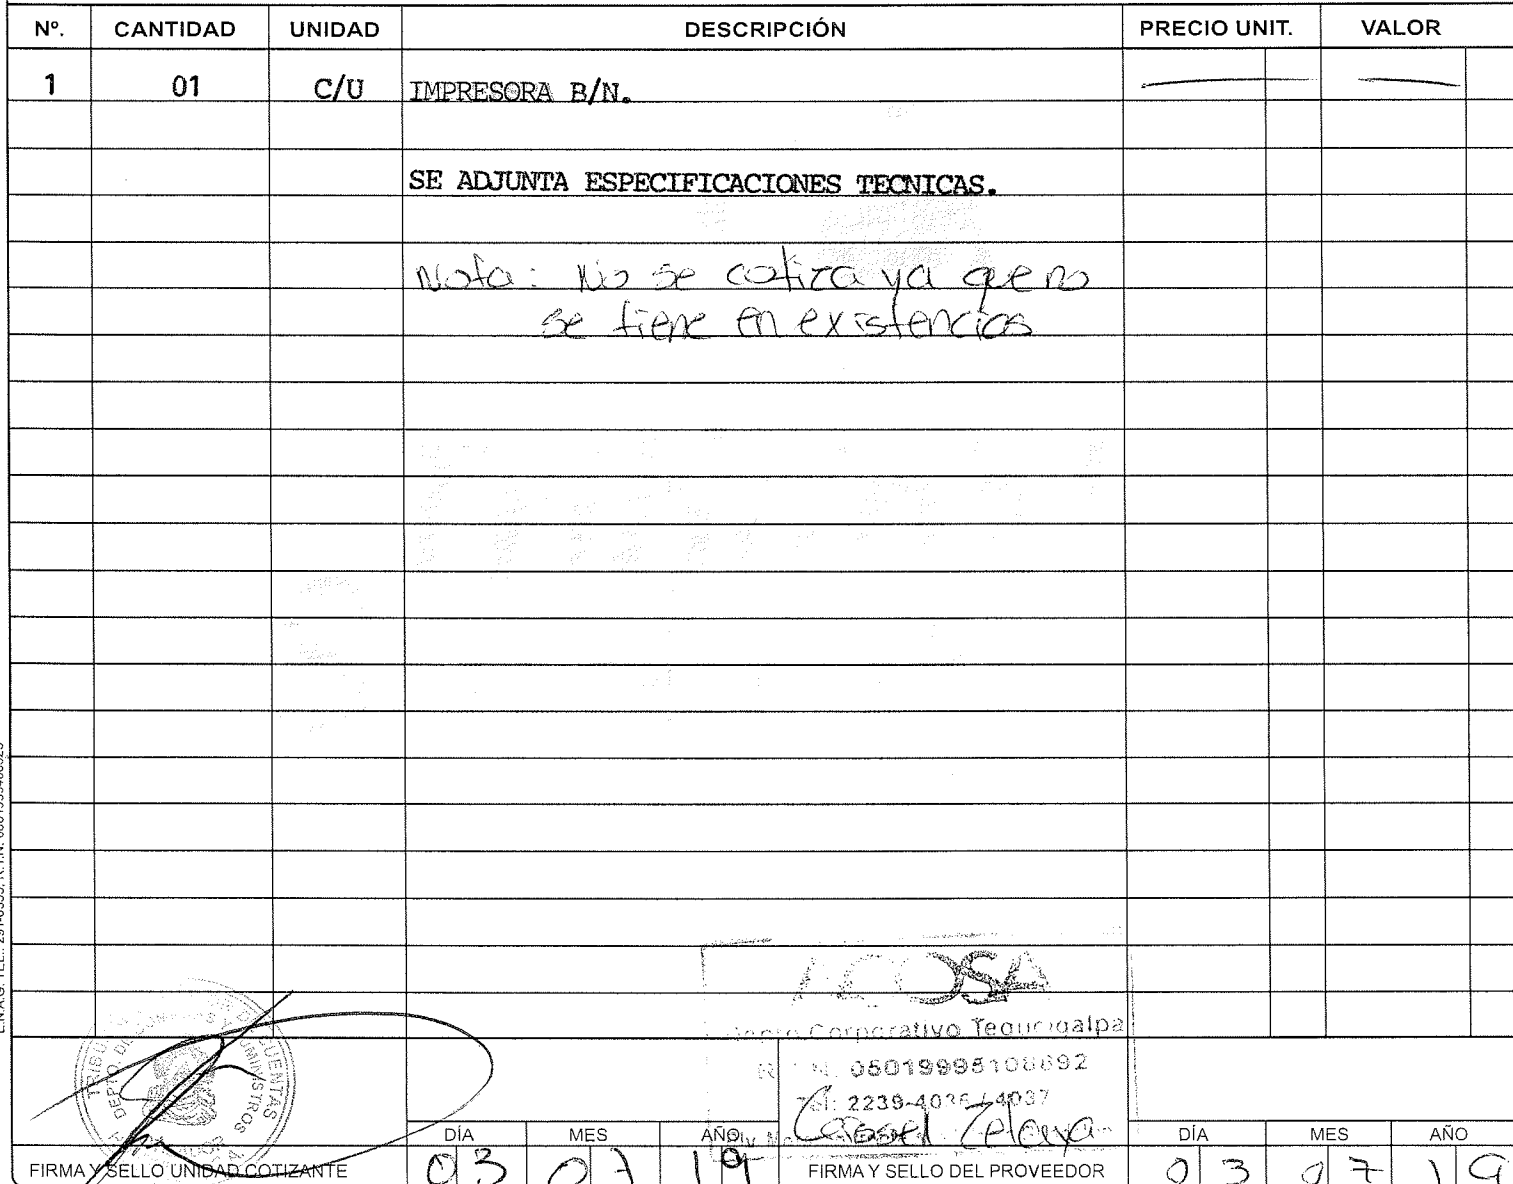 Nº. CANTIDAD UNIDAD DESCRIPCIÓN PRECIO UNIT. VALOR
1 01 C/U IMPRESORA B/N.
SE ADJUNTA ESPECIFICACIONES TECNICAS.
Nota: No se cotiza ya que no
se tiene en existencias
ACOSA
Corporativo Tegucigalpa
Tel: 2239-4035 / 4037
Cassel Zelaya
DÍA MES AÑO DÍA MES AÑO
FIRMA Y SELLO UNIDAD COTIZANTE 03 07 19 FIRMA Y SELLO DEL PROVEEDOR 03 07 19